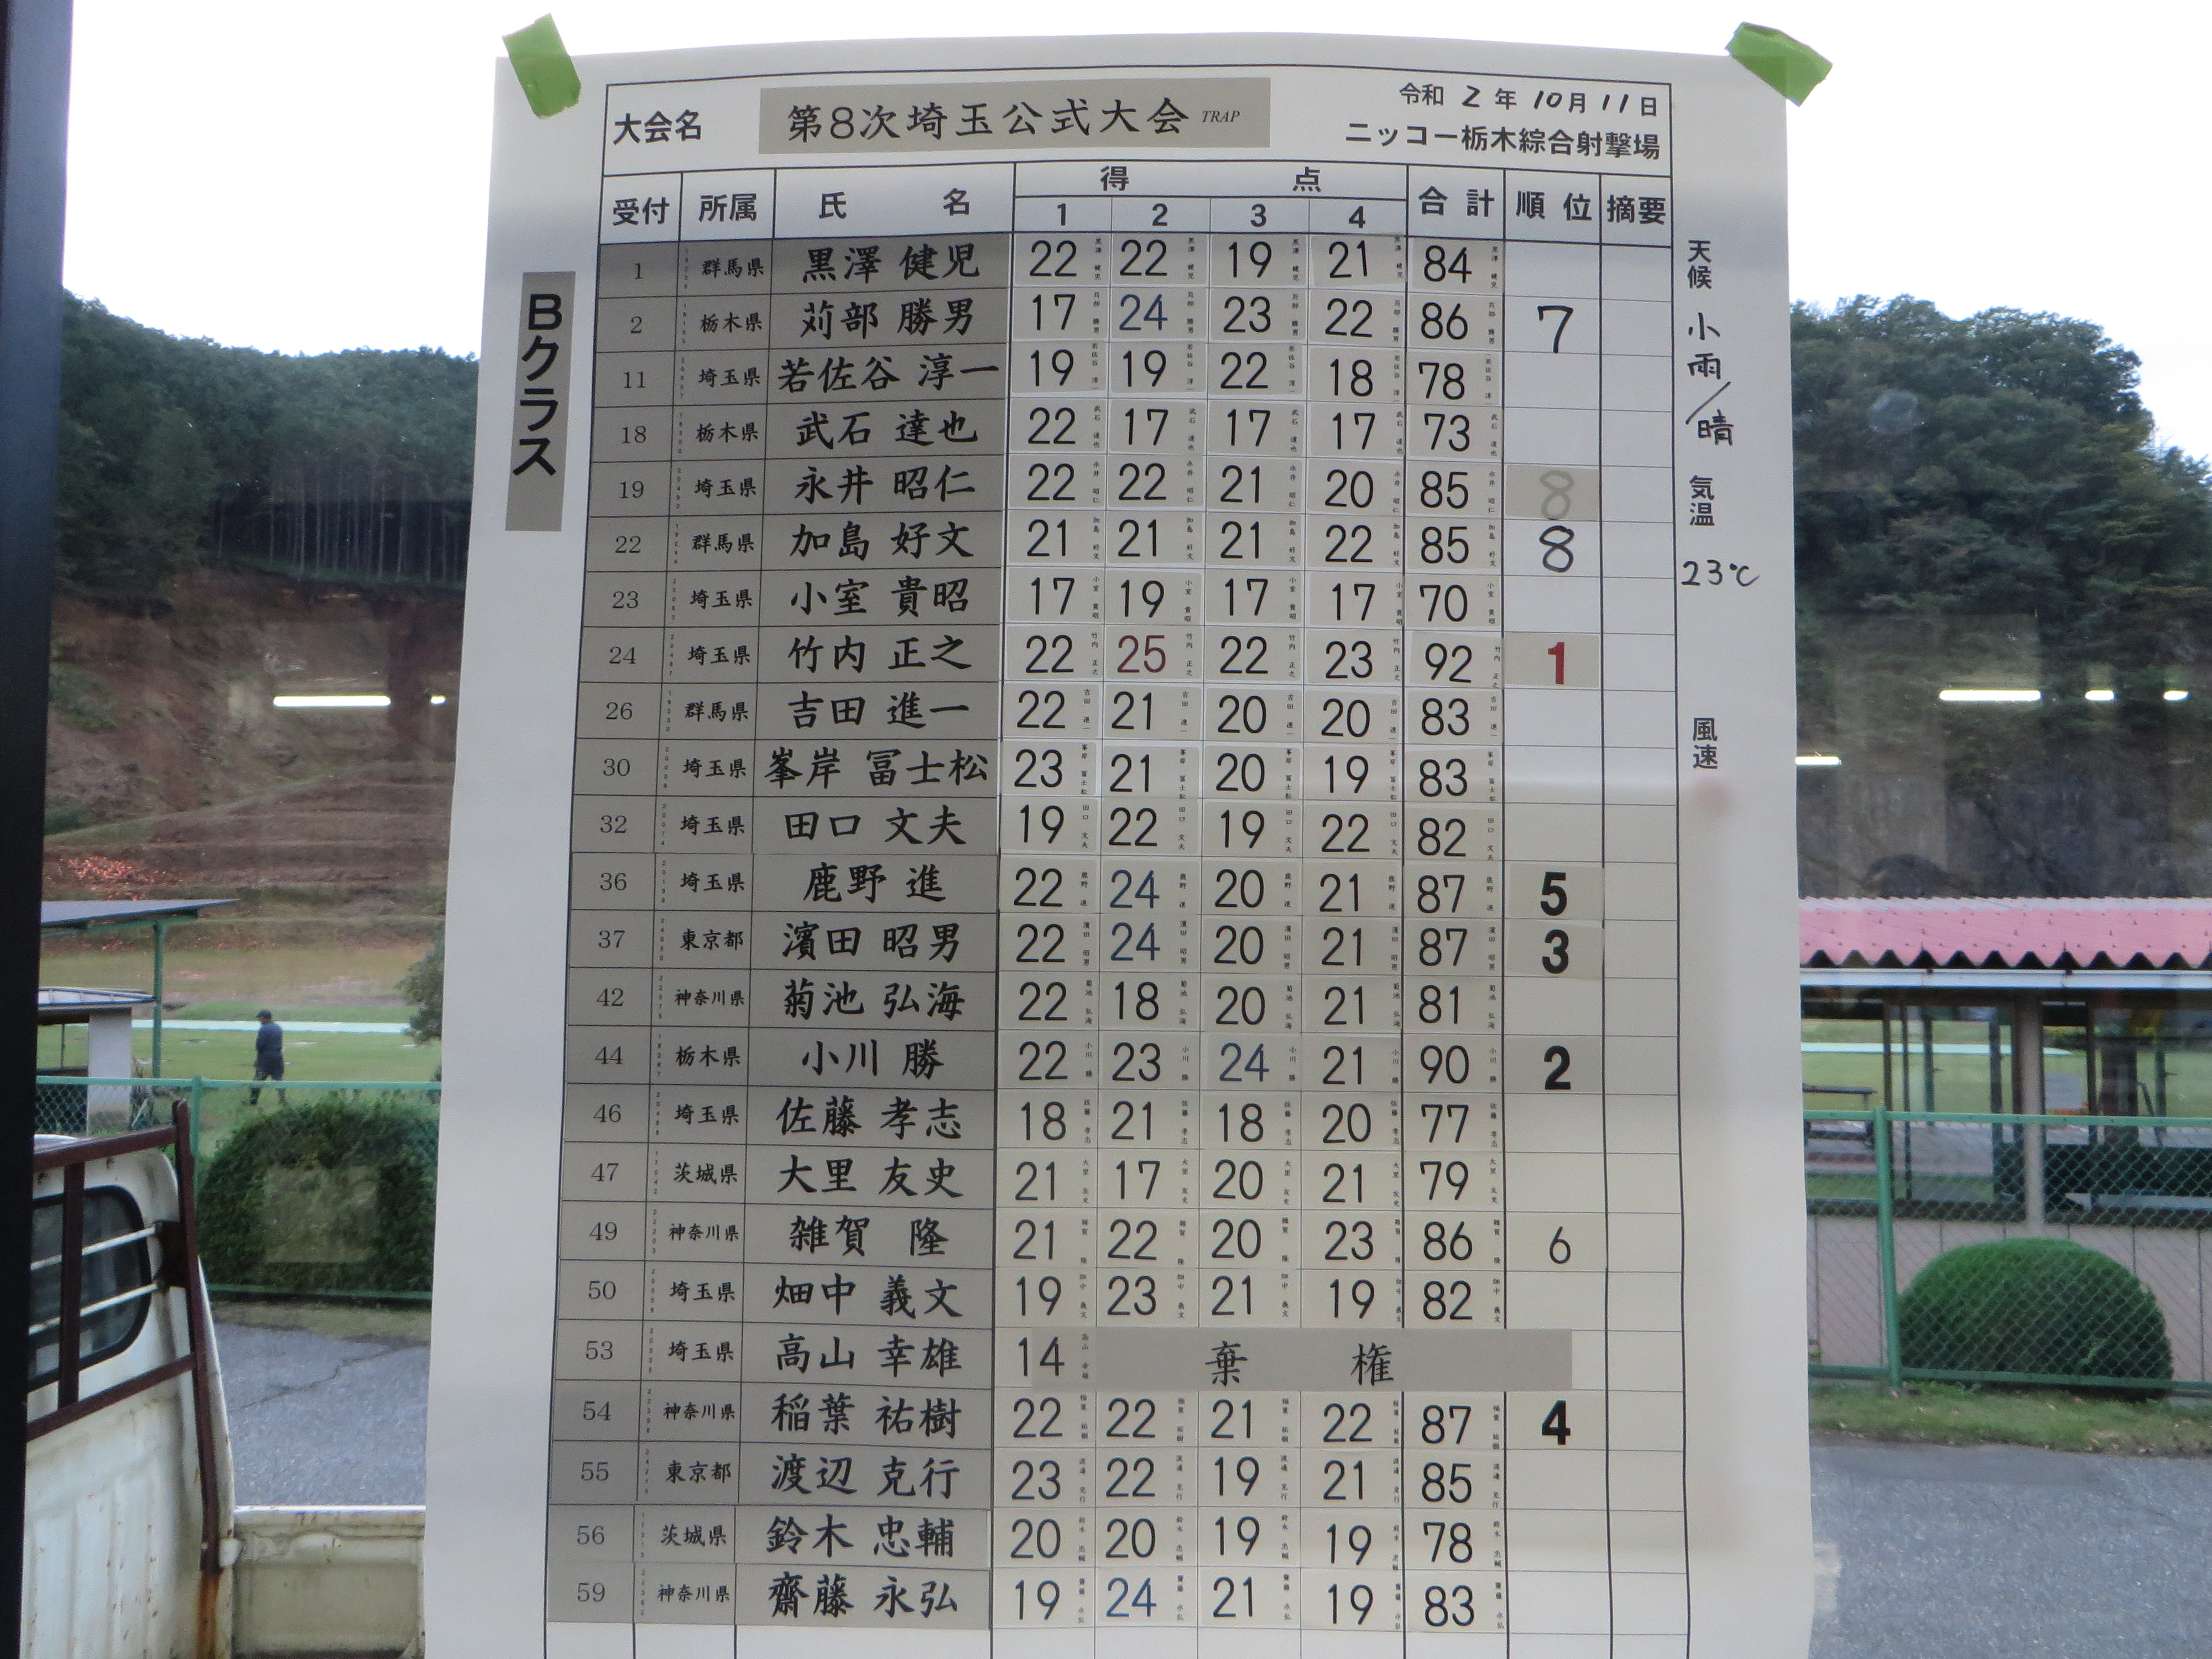 大会名 第8次埼玉公式大会 TRAP 令和 2 年 10月 11日
ニッコー栃木綜合射撃場
受付 所属 氏 名 得 点 合計 順位 摘要
1 2 3 4
Bクラス
1 群馬県 黒澤 健児 22 22 19 21 84
2 栃木県 苅部 勝男 17 24 23 22 86 7
11 埼玉県 若佐谷 淳一 19 19 22 18 78
18 栃木県 武石 達也 22 17 17 17 73
19 埼玉県 永井 昭仁 22 22 21 20 85 8
22 群馬県 加島 好文 21 21 21 22 85 8
23 埼玉県 小室 貴昭 17 19 17 17 70
24 埼玉県 竹内 正之 22 25 22 23 92 1
26 群馬県 吉田 進一 22 21 20 20 83
30 埼玉県 峯岸 冨士松 23 21 20 19 83
32 埼玉県 田口 文夫 19 22 19 22 82
36 埼玉県 鹿野 進 22 24 20 21 87 5
37 東京都 濱田 昭男 22 24 20 21 87 3
42 神奈川県 菊池 弘海 22 18 20 21 81
44 栃木県 小川 勝 22 23 24 21 90 2
46 埼玉県 佐藤 孝志 18 21 18 20 77
47 茨城県 大里 友史 21 17 20 21 79
49 神奈川県 雑賀 隆 21 22 20 23 86 6
50 埼玉県 畑中 義文 19 23 21 19 82
53 埼玉県 高山 幸雄 14 棄 権
54 神奈川県 稲葉 祐樹 22 22 21 22 87 4
55 東京都 渡辺 克行 23 22 19 21 85
56 茨城県 鈴木 忠輔 20 20 19 19 78
59 神奈川県 齋藤 永弘 19 24 21 19 83
天候 小雨/晴
気温 23℃
風速